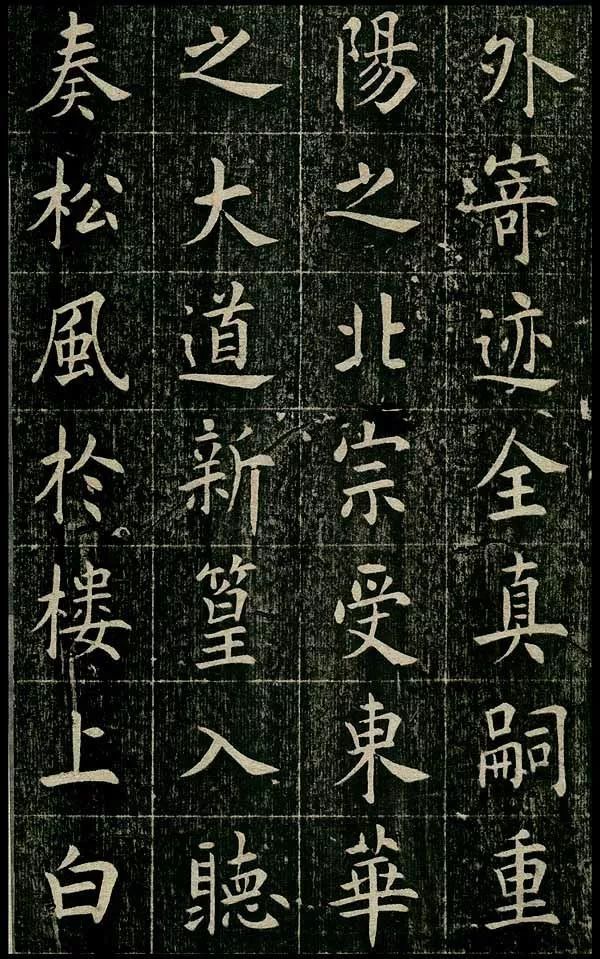 外寄迹全真嗣重
陽之北宗受東華
之大道新篁入聽
奏松風於樓上白